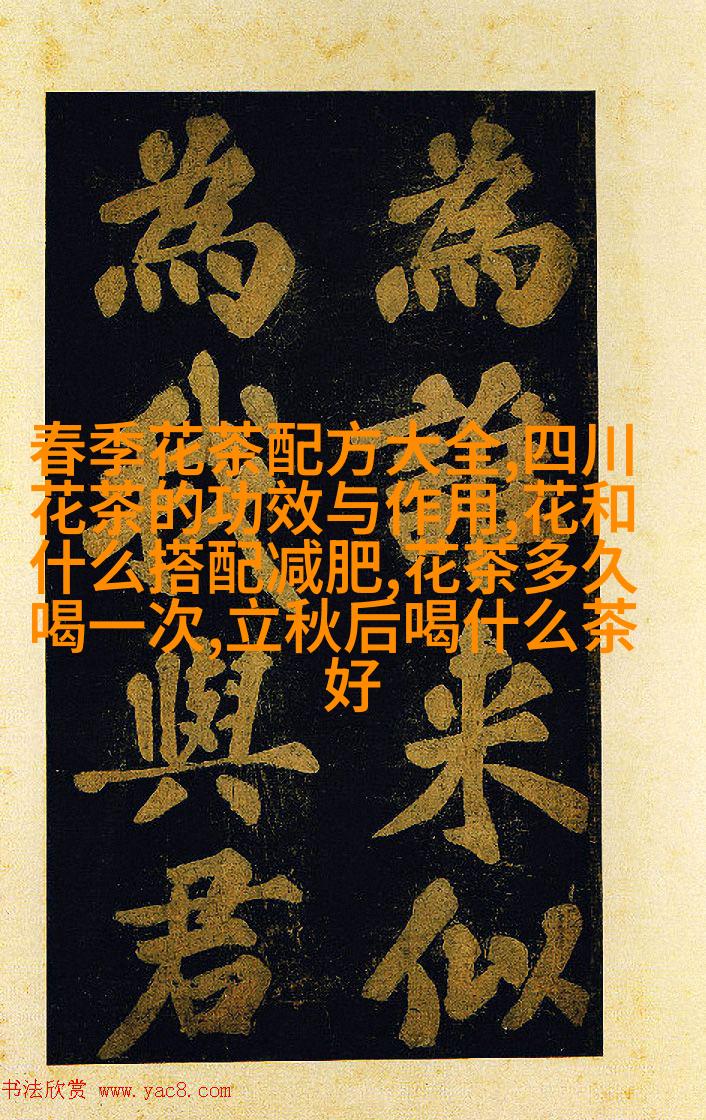 春季花茶配方大全,四川
花茶的功效与作用,花和
什么搭配减肥,花茶多久
喝一次,立秋后喝什么茶
好
為来似
為我與君
书法欣赏 www.yac8.com